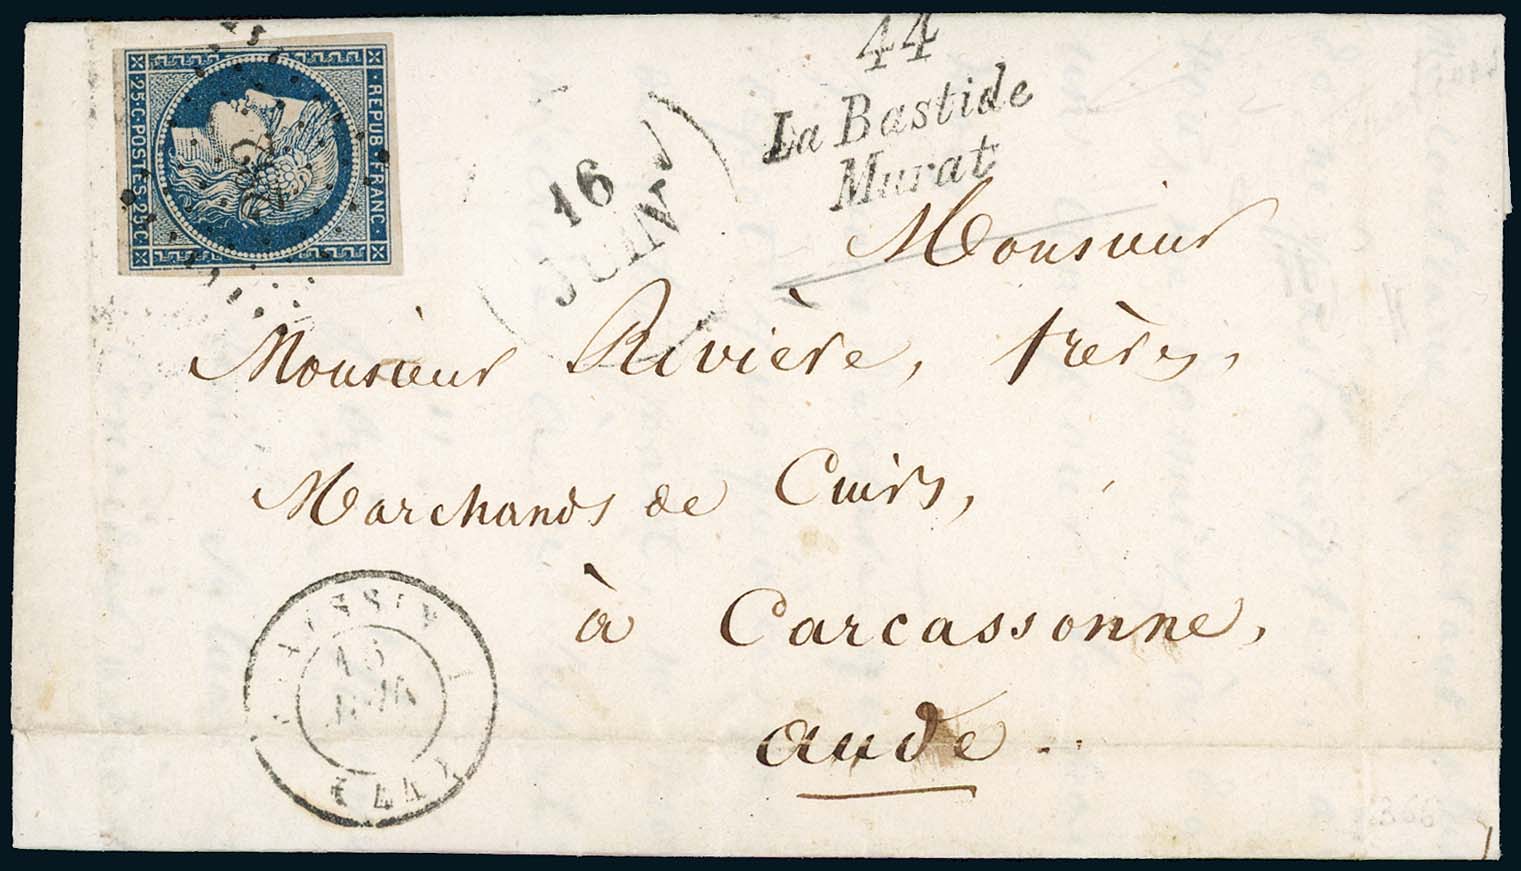 44
La Bastide
Murat
REPUB·FRANC·
25·C·POSTES·25·C
16
JUIN
Monsieur
Monsieur Rivière, frères,
Marchands de Cuirs,
à Carcassonne,
aude